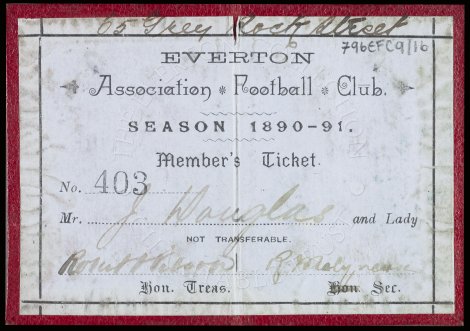 65 Grey Rock Street
796EFC9/16
EVERTON
Association Football Club.
SEASON 1890-91.
Member's Ticket.
No. 403
Mr. J. Douglas and Lady
NOT TRANSFERABLE.
R. Molyneux
Hon. Treas. Hon Sec.